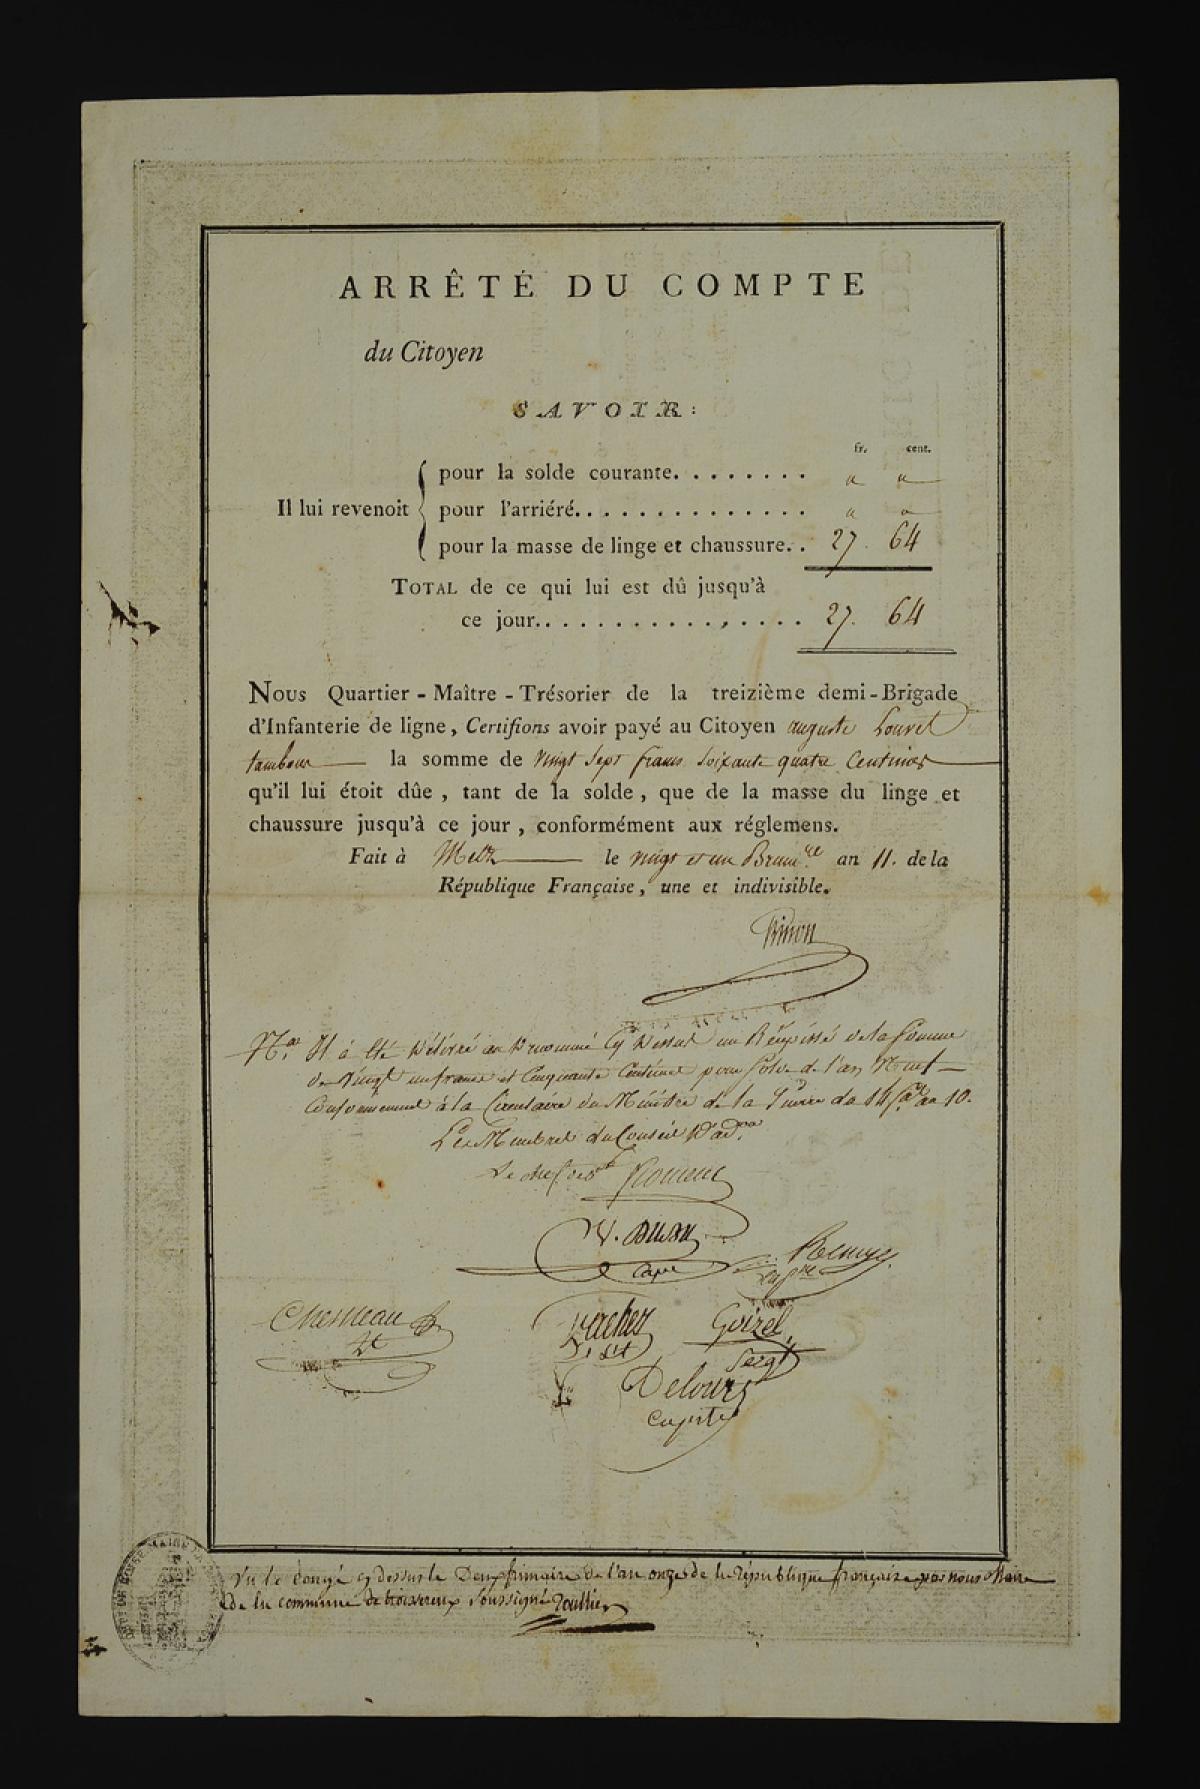 ARRÊTÉ DU COMPTE
du Citoyen
SAVOIR:
fr. cent.
Il lui revenoit
pour la solde courante........ " "
pour l'arriéré.............. " "
pour la masse de linge et chaussure.. 27. 64
TOTAL de ce qui lui est dû jusqu'à
ce jour................ 27. 64
Nous Quartier-Maître-Trésorier de la treizième demi-Brigade
d'Infanterie de ligne, Certifions avoir payé au Citoyen auguste Louvel
tambour la somme de vingt sept francs soixante quatre Centimes
qu'il lui étoit dûe, tant de la solde, que de la masse du linge et
chaussure jusqu'à ce jour, conformément aux réglemens.
Fait à Metz le vingt et un Brum.re an 11. de la
République Française, une et indivisible.
Il à été Délivré au Dénommé Cy Dessus un Récépissé de la Somme
de Vingt un francs et Cinquante Centimes pour Solde de l'an Neuf
Conformément à la Circulaire du Ministre de la Guerre du 14 an 10.
Les Membres du Conseil D'ad.on
Le chef de
Cape
Chesneau
Lt
Goizel
Sergt
Delours
Capite
Vu le Congé cy dessus le Deux frimaire de l'an onze de la République française par nous Maire
de la commune de troisvereux Soussigné